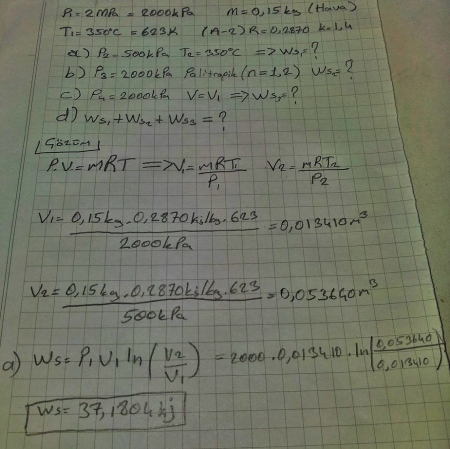 P₁=2MPa = 2000kPa M=0,15kg (Hava)
T₁=350°C = 623K (A-2) R=0,2870 k=1,4
a) P₂=500kPa T₂=350°C => Ws₁=?
b) P₃=2000kPa Politropik (n=1,2) Ws₂=?
c) P₄=2000kPa V=V₁ => Ws₃=?
d) Ws₁+Ws₂+Ws₃=?
Çözüm
P.V=mRT => V₁=mRT₁/P₁ V₂=mRT₂/P₂
V₁=0,15kg.0,2870kj/kg.623/2000kPa =0,013410m³
V₂=0,15kg.0,2870kj/kg.623/500kPa =0,053640m³
a) Ws=P₁V₁ln(V₂/V₁) =2000.0,013410.ln(0,053640/0,013410)
Ws=37,1804kj